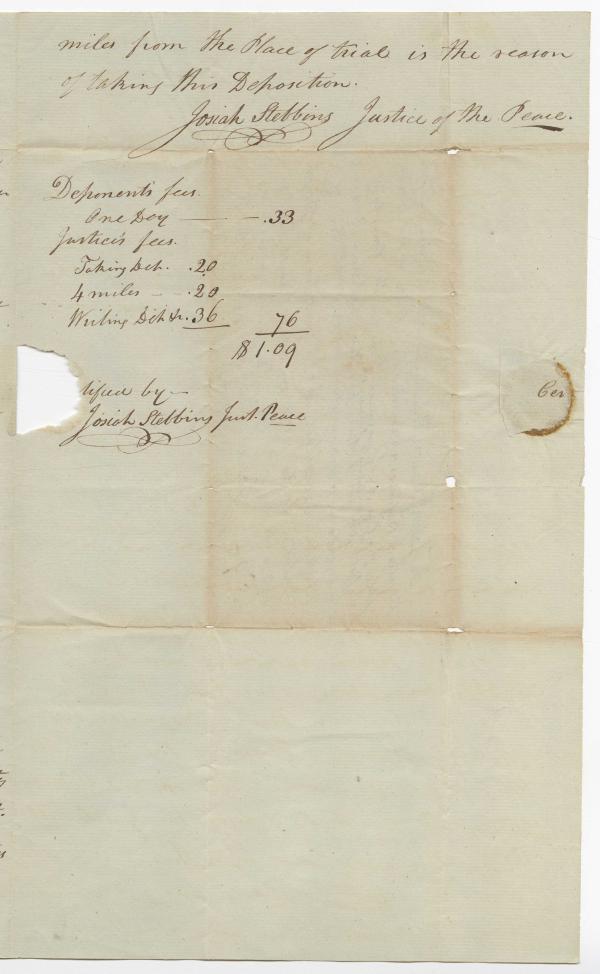 miles from the Place of trial is the reason
of taking this Deposition.
Josiah Stebbins Justice of the Peace.
Deponent's fees.
One Day — — .33
Justice's fees.
Taking Dep. .20
4 miles — .20
Writing Dep. &c. .36 76
$1.09
tified by —
Cer
Josiah Stebbins Just. Peace